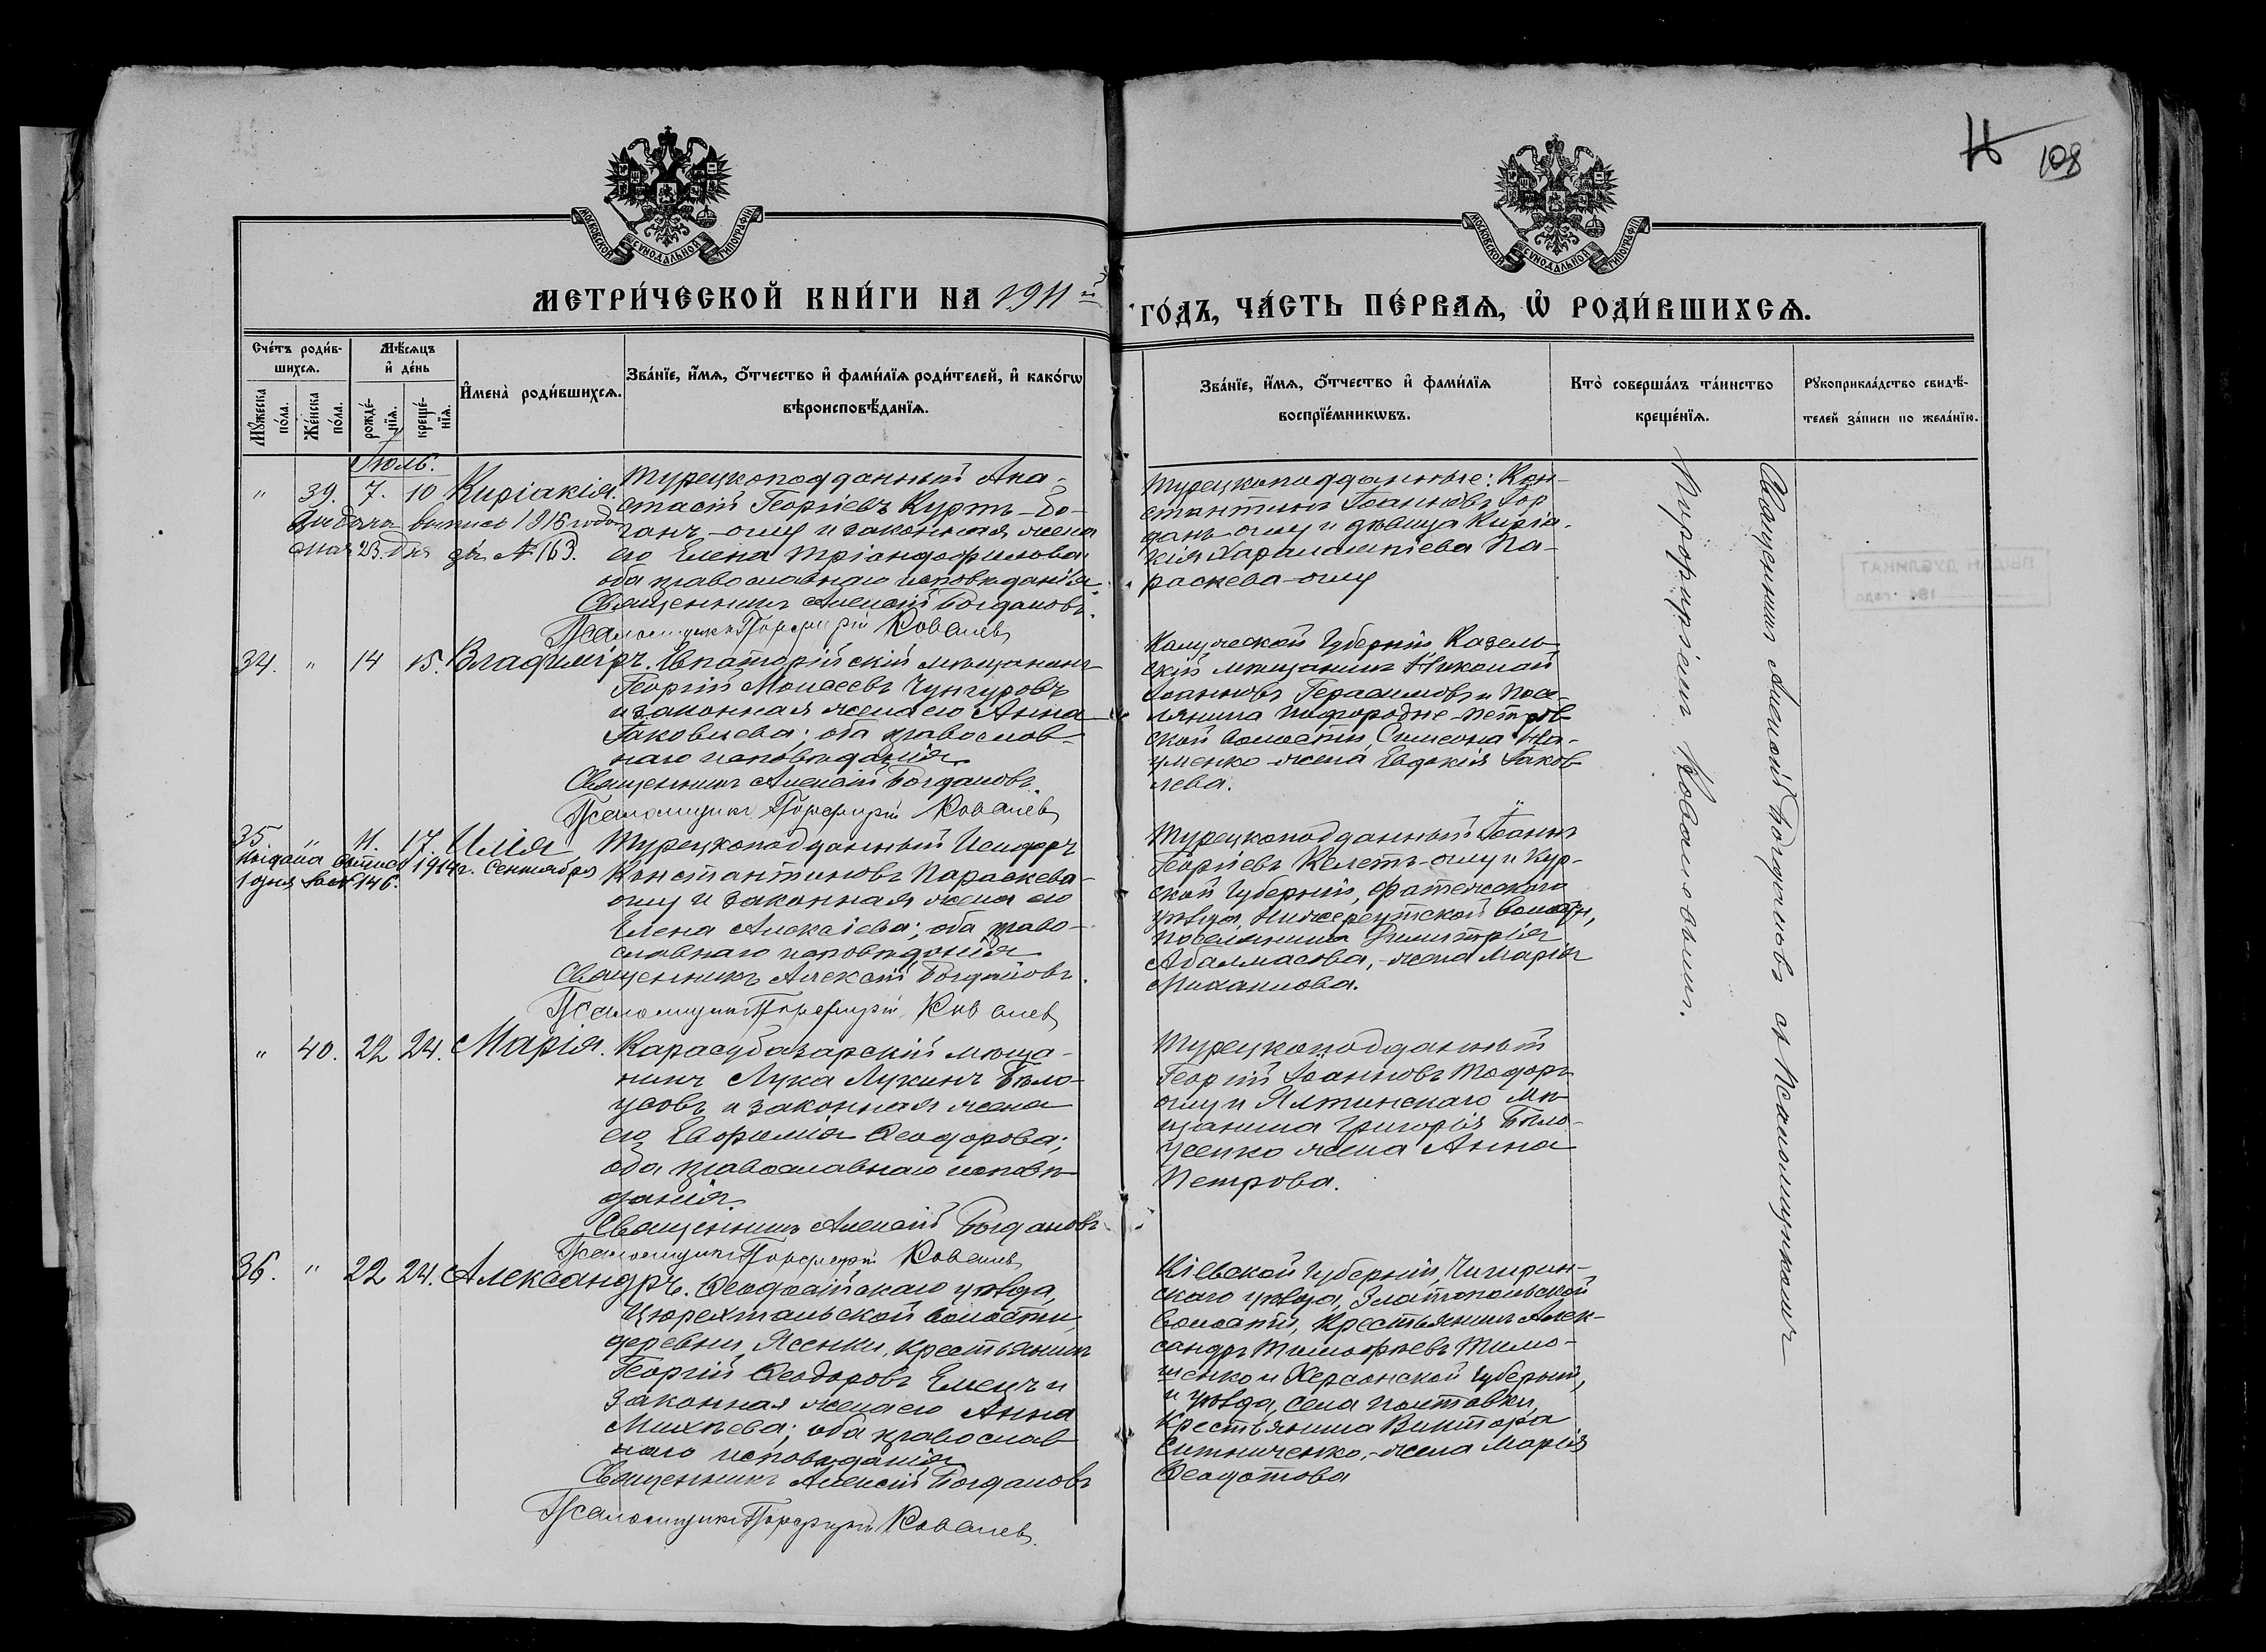 108
МОСКОВСКОЙ СѴНОДАЛЬНОЙ ТИПОГРАФІИ
МОСКОВСКОЙ СѴНОДАЛЬНОЙ ТИПОГРАФІИ
МЕТРИ́ЧЕСКОЙ КНИ́ГИ НА 1911й
ГО́ДЪ, ЧА́СТЬ ПЕ́РВАѦ, Ѽ РОДИ́ВШИХСѦ.
Сче́тъ роди́в-
шихсѧ.
Мꙋ́жеска
по́ла.
Же́нска
по́ла.
Мѣ́сѧцъ
и҆ де́нь
рожде́-
нїѧ.
креще́-
нїѧ.
И҆мена̀ роди́вшихсѧ.
Зва́нїе, и҆́мѧ, ѻ҆́тчество и҆ фами́лїѧ роди́телей, и҆ како́гѡ
вѣроисповѣ́данїѧ.
Зва́нїе, и҆́мѧ, ѻ҆́тчество и҆ фами́лїѧ
воспрїе́мникѡвъ.
Кто̀ соверша́лъ та́инство
креще́нїѧ.
Рꙋкоприкла́дство свидѣ́-
телей за́писи по жела́нїю.
Іюль.
" 39. 7. 10 Киріакія.
Выдана выпись 1916 года
мая 23 дня за № 163.
Турецкоподданный Ана-
стасій Георгіевъ Куртъ-До-
ганъ-оглу и законная жена
его Елена Тріандафилова;
оба православнаго исповѣданія
Священникъ Алексій Богдановъ.
Псаломщикъ Порфирій Ковалевъ
Турецкоподданные: Кон-
стантинъ Іоанновъ
оглу и дѣвица Киріа-
кія Харалампіева Па-
раскева-оглу
34. " 14 15. Владиміръ.
Евпаторійскій мѣщанинъ
Георгій Моисеевъ Чунгуровъ
и законная жена его Анна
Іаковлева; оба православ-
наго исповѣданія
Священникъ Алексій Богдановъ.
Псаломщикъ Порфирій Ковалевъ
Калужской губерніи, Козель-
скій мѣщанинъ Николай
Іоанновъ Герасимовъ и посе-
лянина Подгородне-Петров-
ской волости, Симеона На-
уменко жена Евдокія Іаков-
лева.
35. " 11. 17. Илія
Выдана выпись 1914 г. Сентября
1 дня за № 146.
Турецкоподданный Исидоръ
Константиновъ Параскева-
оглу и законная жена его
Елена Алексіева; оба право-
славнаго исповѣданія
Священникъ Алексій Богдановъ.
Псаломщикъ Порфирій Ковалевъ
Турецкоподданный Іоаннъ
Георгіевъ Келетъ-оглу и Кур-
ской губерніи, Фатежскаго
уѣзда, Нижереутской волости,
поселянина Димитрія
Абалмасова, - жена Марія
Михаилова.
" 40. 22 24. Марія.
Карасубазарскій мѣща-
нинъ Лука Лукинъ Бѣло-
усовъ и законная жена
его Евфимія Ѳеодорова;
оба православнаго исповѣ-
данія.
Священникъ Алексій Богдановъ
Псаломщикъ Порфирій Ковалевъ
Турецкоподданный
Георгій Іоанновъ Тодоръ-
оглу и Ялтинскаго мѣ-
щанина Григорія Бѣло-
усенко жена Анна
Петрова.
36. " 22 24. Александръ.
Ѳеодосійскаго уѣзда,
Цюрехтальской волости,
деревни Ясенки, крестьянинъ
Георгій Ѳеодоровъ Емецъ и
законная жена его Анна
Михѣева; оба православ-
наго исповѣданія
Священникъ Алексій Богдановъ
Псаломщикъ Порфирій Ковалевъ.
Кіевской губерніи, Чигирин-
скаго уѣзда, Златопольской
волости, крестьянинъ Алек-
сандръ Тимофѣевъ Тимо-
шенко и Херсонской губерніи,
и уѣзда, села Полтавки,
крестьянина Виктора
Ситниченко, - жена Марія
Ѳеодотова
Священникъ Алексій Богдановъ съ Псаломщикомъ
Порфиріемъ Ковалевымъ.
ВЫДАН ДУБЛИКАТ
194 года